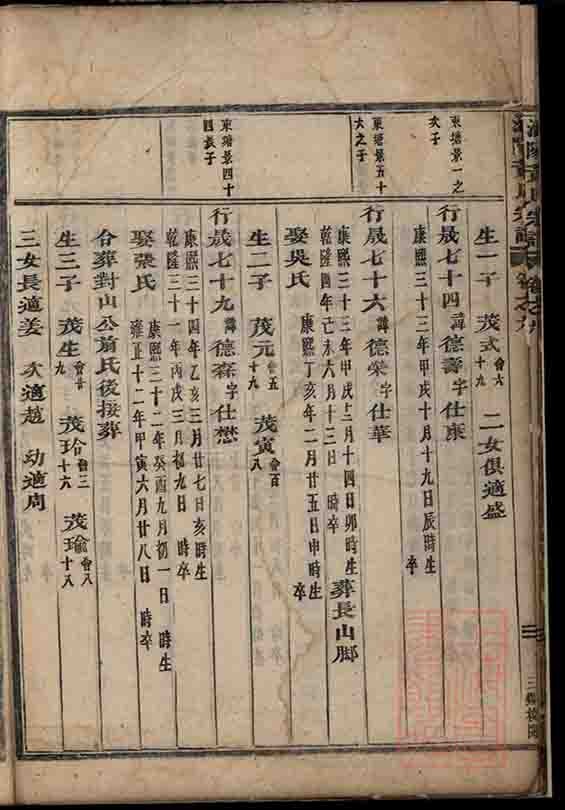 生一子 茂式 會六十九 二女俱適盛
東塘景一之次子
行晟七十四 諱德壽字仕康
康熙三十三年甲戌十月十九日辰時生 卒
東塘景五十六之子
行晟七十六 諱德榮字仕華
康熙三十三年甲戌十二月十四日卯時生
乾隆四年己未六月十三日 時卒 葬長山脚
娶吳氏 康熙丁亥年二月廿五日申時生 卒
生二子 茂元 會五十九 茂寅 會百八
東塘景四十四長子
行晟七十九 諱德森字仕懋
康熙三十四年乙亥三月廿七日亥時生
乾隆三十一年丙戌三月初九日 時卒
娶張氏 康熙三十二年癸酉九月初一日 時生
雍正十二年甲寅六月廿八日 時卒
合葬對山公前氏後接葬
生三子 茂生 會廿九 茂玲 會三十六 茂瑜 會八十八
三女長適姜 次適趙 幼適周